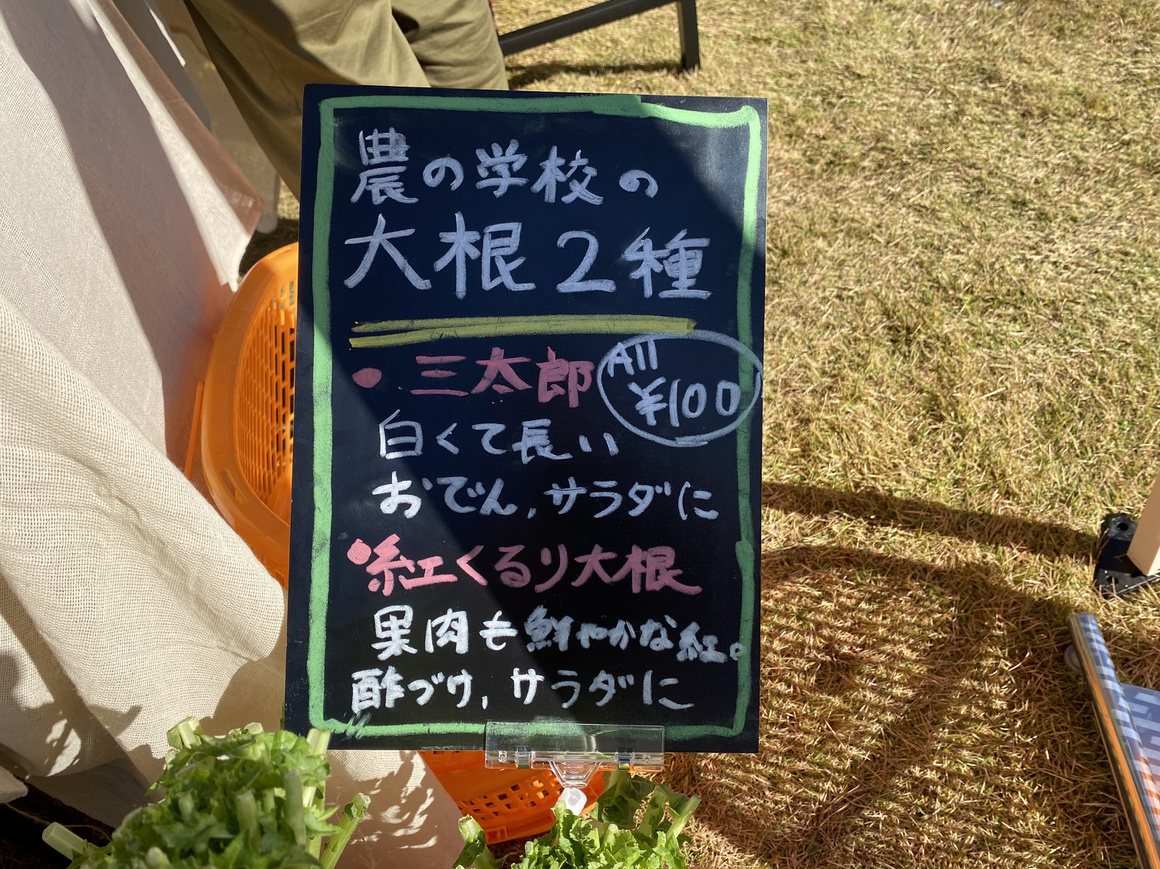 農の学校の
大根2種
• 三太郎
All
¥100
白くて長い
おでん,サラダに
•紅くるり大根
果肉も鮮やかな紅。
酢づけ,サラダに